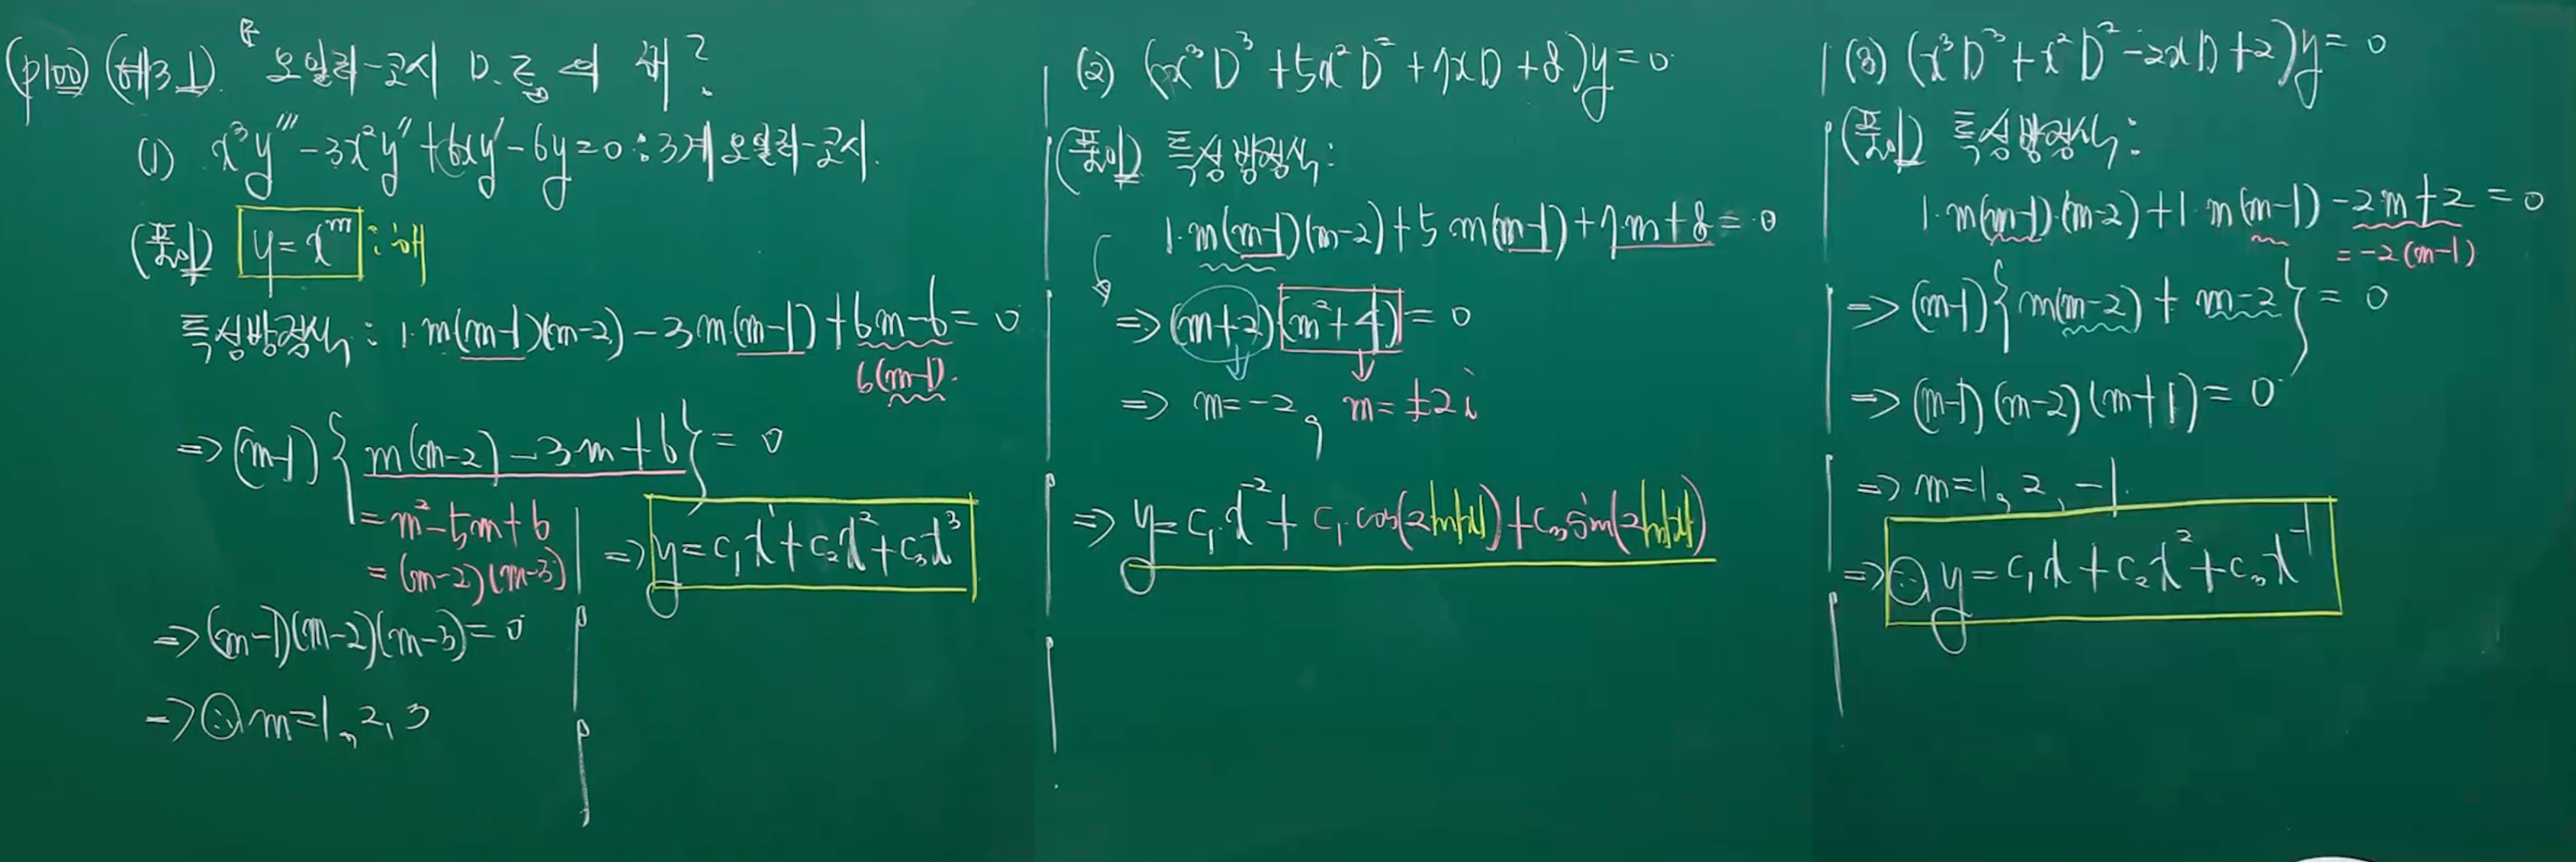 (p100) (예3.1) 오일러-코시 D.E의 해?
(1) x³y''' - 3x²y'' + 6xy' - 6y = 0 : 3계 오일러-코시.
(풀이) y = x^m : 해
특성방정식 : 1·m(m-1)(m-2) - 3m(m-1) + 6m - 6 = 0
6(m-1).
⇒ (m-1){m(m-2) - 3m + 6} = 0
= m² - 5m + 6
= (m-2)(m-3)
⇒ (m-1)(m-2)(m-3) = 0
⇒ ∴ m = 1, 2, 3
⇒ y = c₁x¹ + c₂x² + c₃x³
(2) (x³D³ + 5x²D² + 7xD + 8)y = 0
(풀이) 특성방정식 :
1·m(m-1)(m-2) + 5·m(m-1) + 7·m + 8 = 0
⇒ (m+2)(m²+4) = 0
⇒ m = -2, m = ±2i
⇒ y = c₁·x⁻² + c₁·cos(2ln|x|) + c₃sin(2ln|x|)
(3) (x³D³ + x²D² - 2xD + 2)y = 0
(풀이) 특성방정식 :
1·m(m-1)·(m-2) + 1·m(m-1) - 2m + 2 = 0
= -2(m-1)
⇒ (m-1){m(m-2) + m-2} = 0
⇒ (m-1)(m-2)(m+1) = 0
⇒ m = 1, 2, -1.
⇒ ∴ y = c₁x + c₂x² + c₃x⁻¹